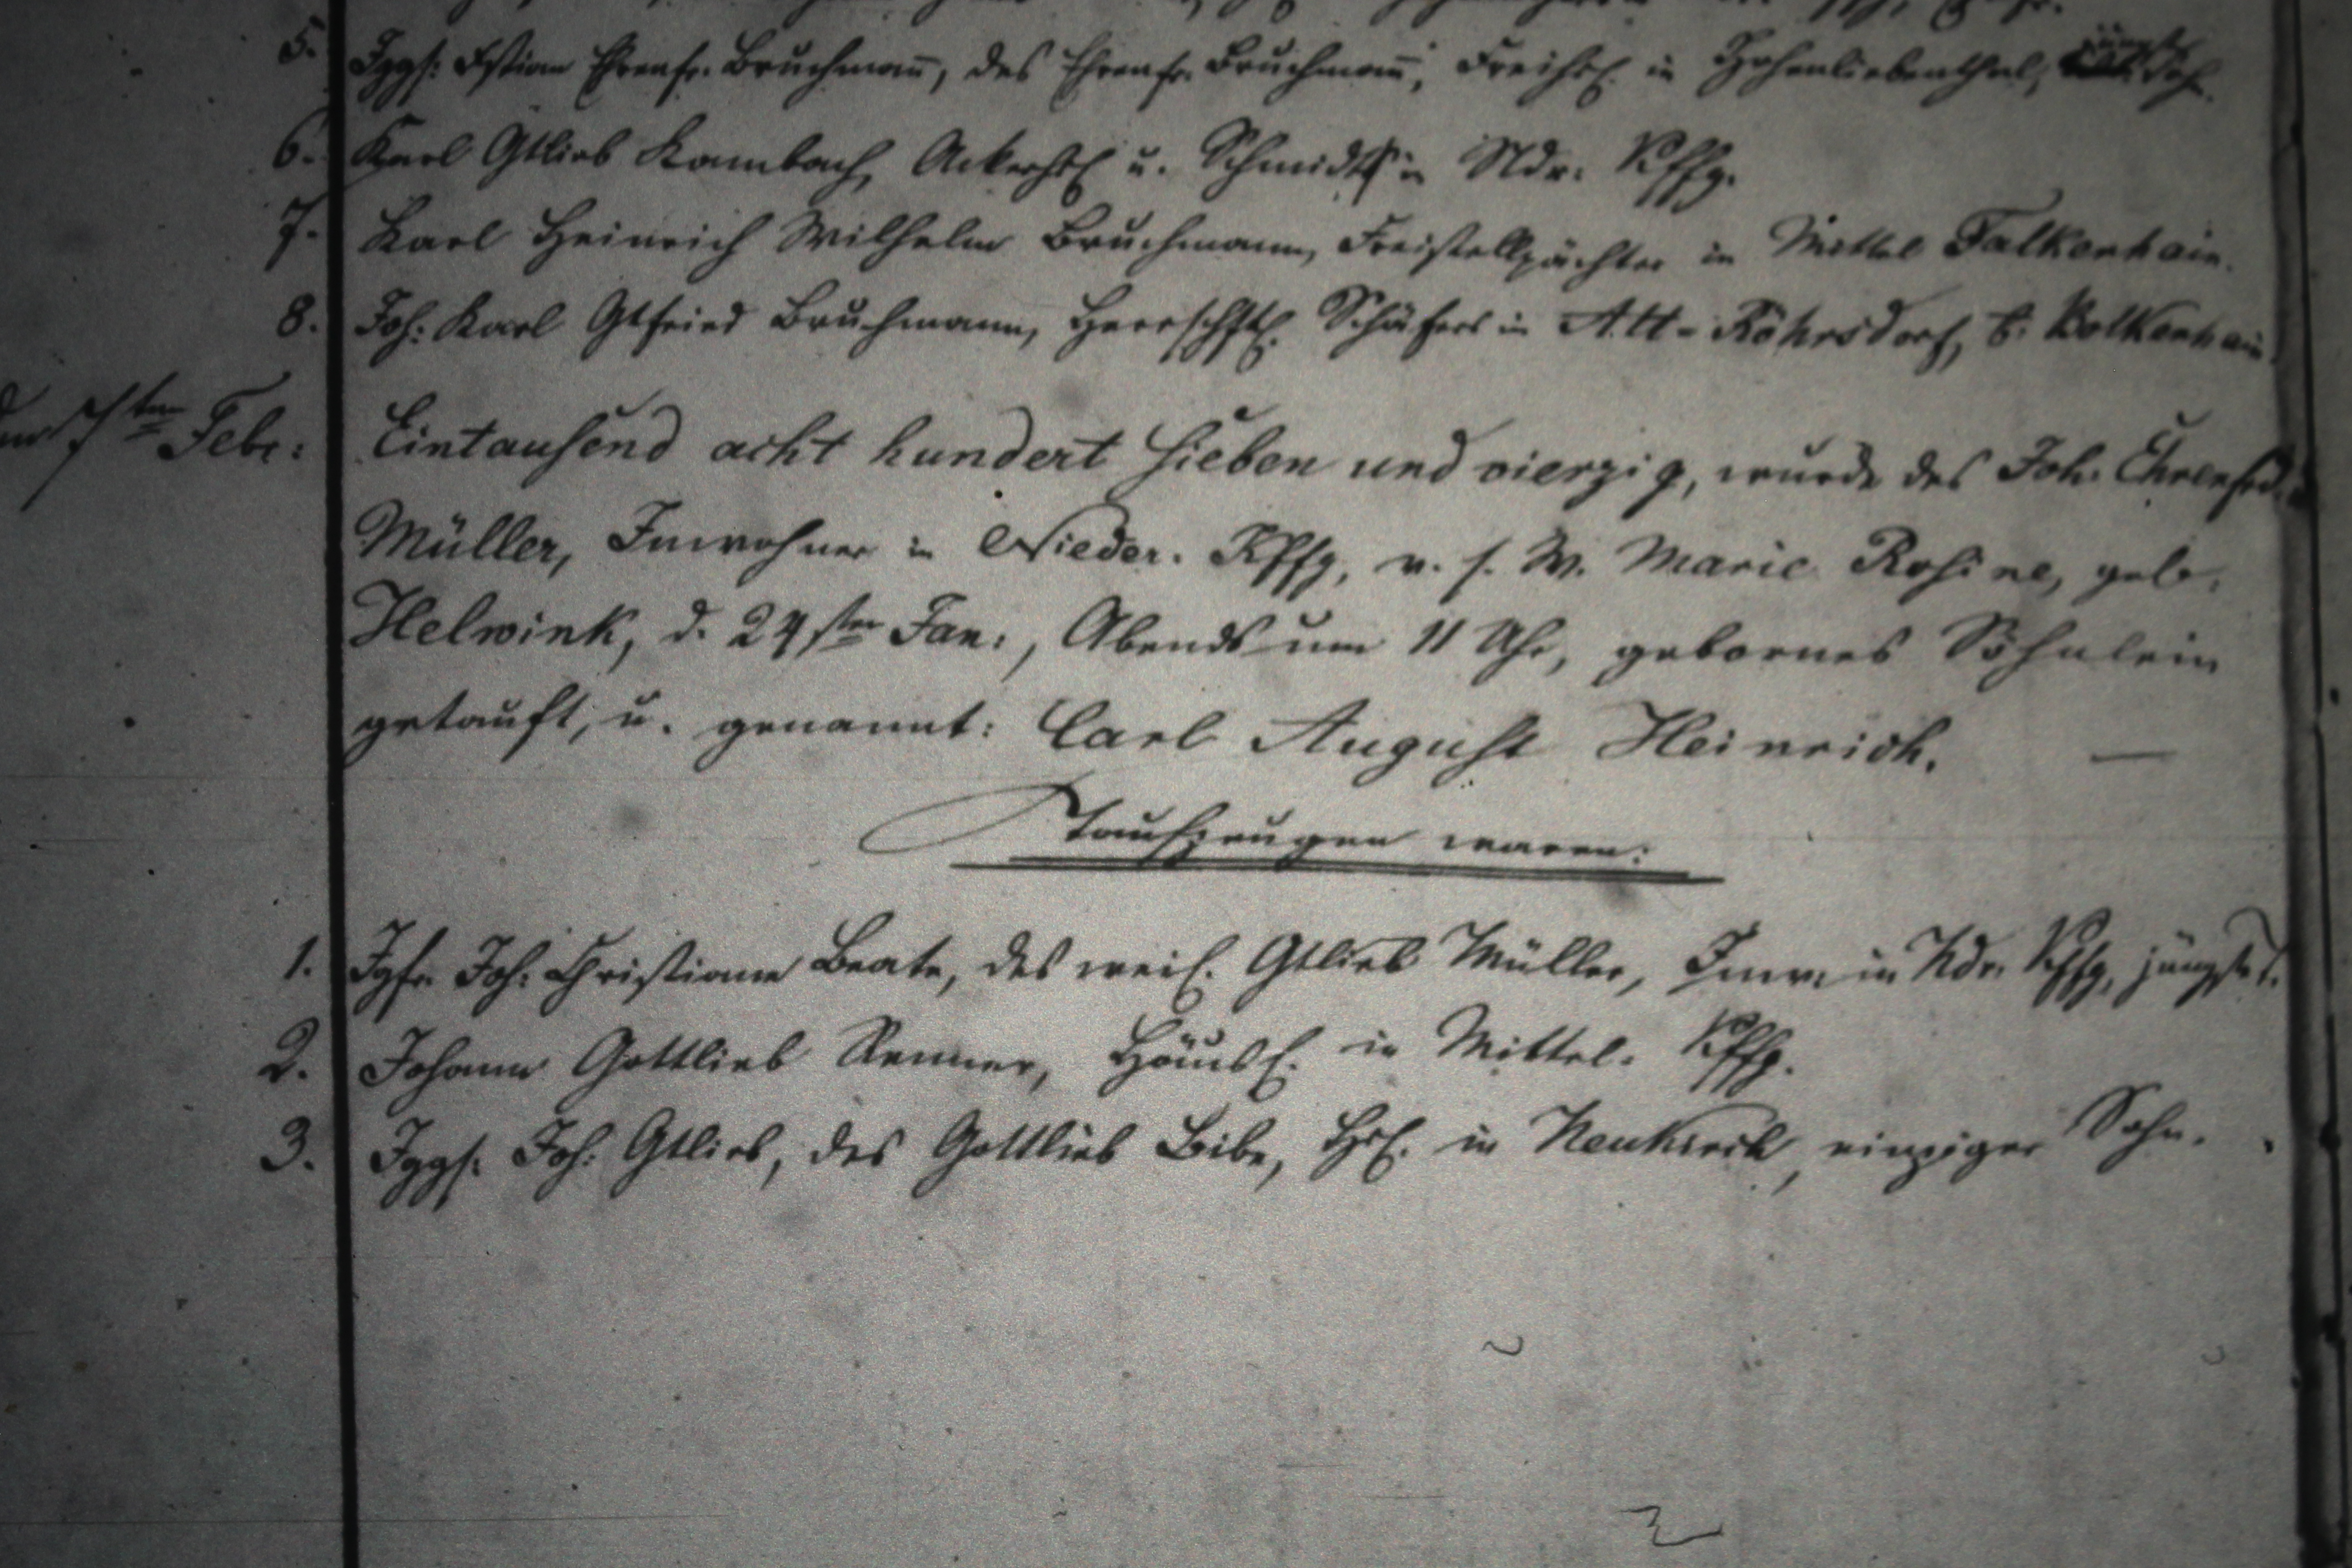 5. Jggs: Xstian Ehrenfr. Bruchmann, des Ehrenfr. Bruchmann, Freihsl. in Hohenliebenthal,
6. Karl Gtlieb Kambach, Ackerhsl u. Schmidt in Ndr. Kffg.
7. Karl Heinrich Wilhelm Bruchmann, Freistellpächter in Mittel Falkenhain.
8. Joh: Karl Gtfried Bruchmann, Herrschftl. Schäfer in Alt-Röhrsdorf, b. Bolkenhain
7ten Febr: Eintausend acht hundert sieben und vierzig, wurde des Joh: Ehrenfrd.
Müller, Inwohner in Nieder. Kffg, v. s. W. Marie Rosine, geb.
Helwink, d. 24sten Jan:, Abends um 11 Uhr, gebornes Söhnlein
getauft, u. genannt: Carl August Heinrich. —
Taufzeugen waren:
1. Jgfr. Joh: Christiane Beate, des weil. Gtlieb Müller, Inw. in Ndr. Kffg, jüngste T.
2. Johann Gottlieb Renner, Häusl. in Mittel. Kffg.
3. Jggs: Joh: Gtlieb, des Gottlieb Beibe, Hsl. in Neukirch, einziger Sohn.